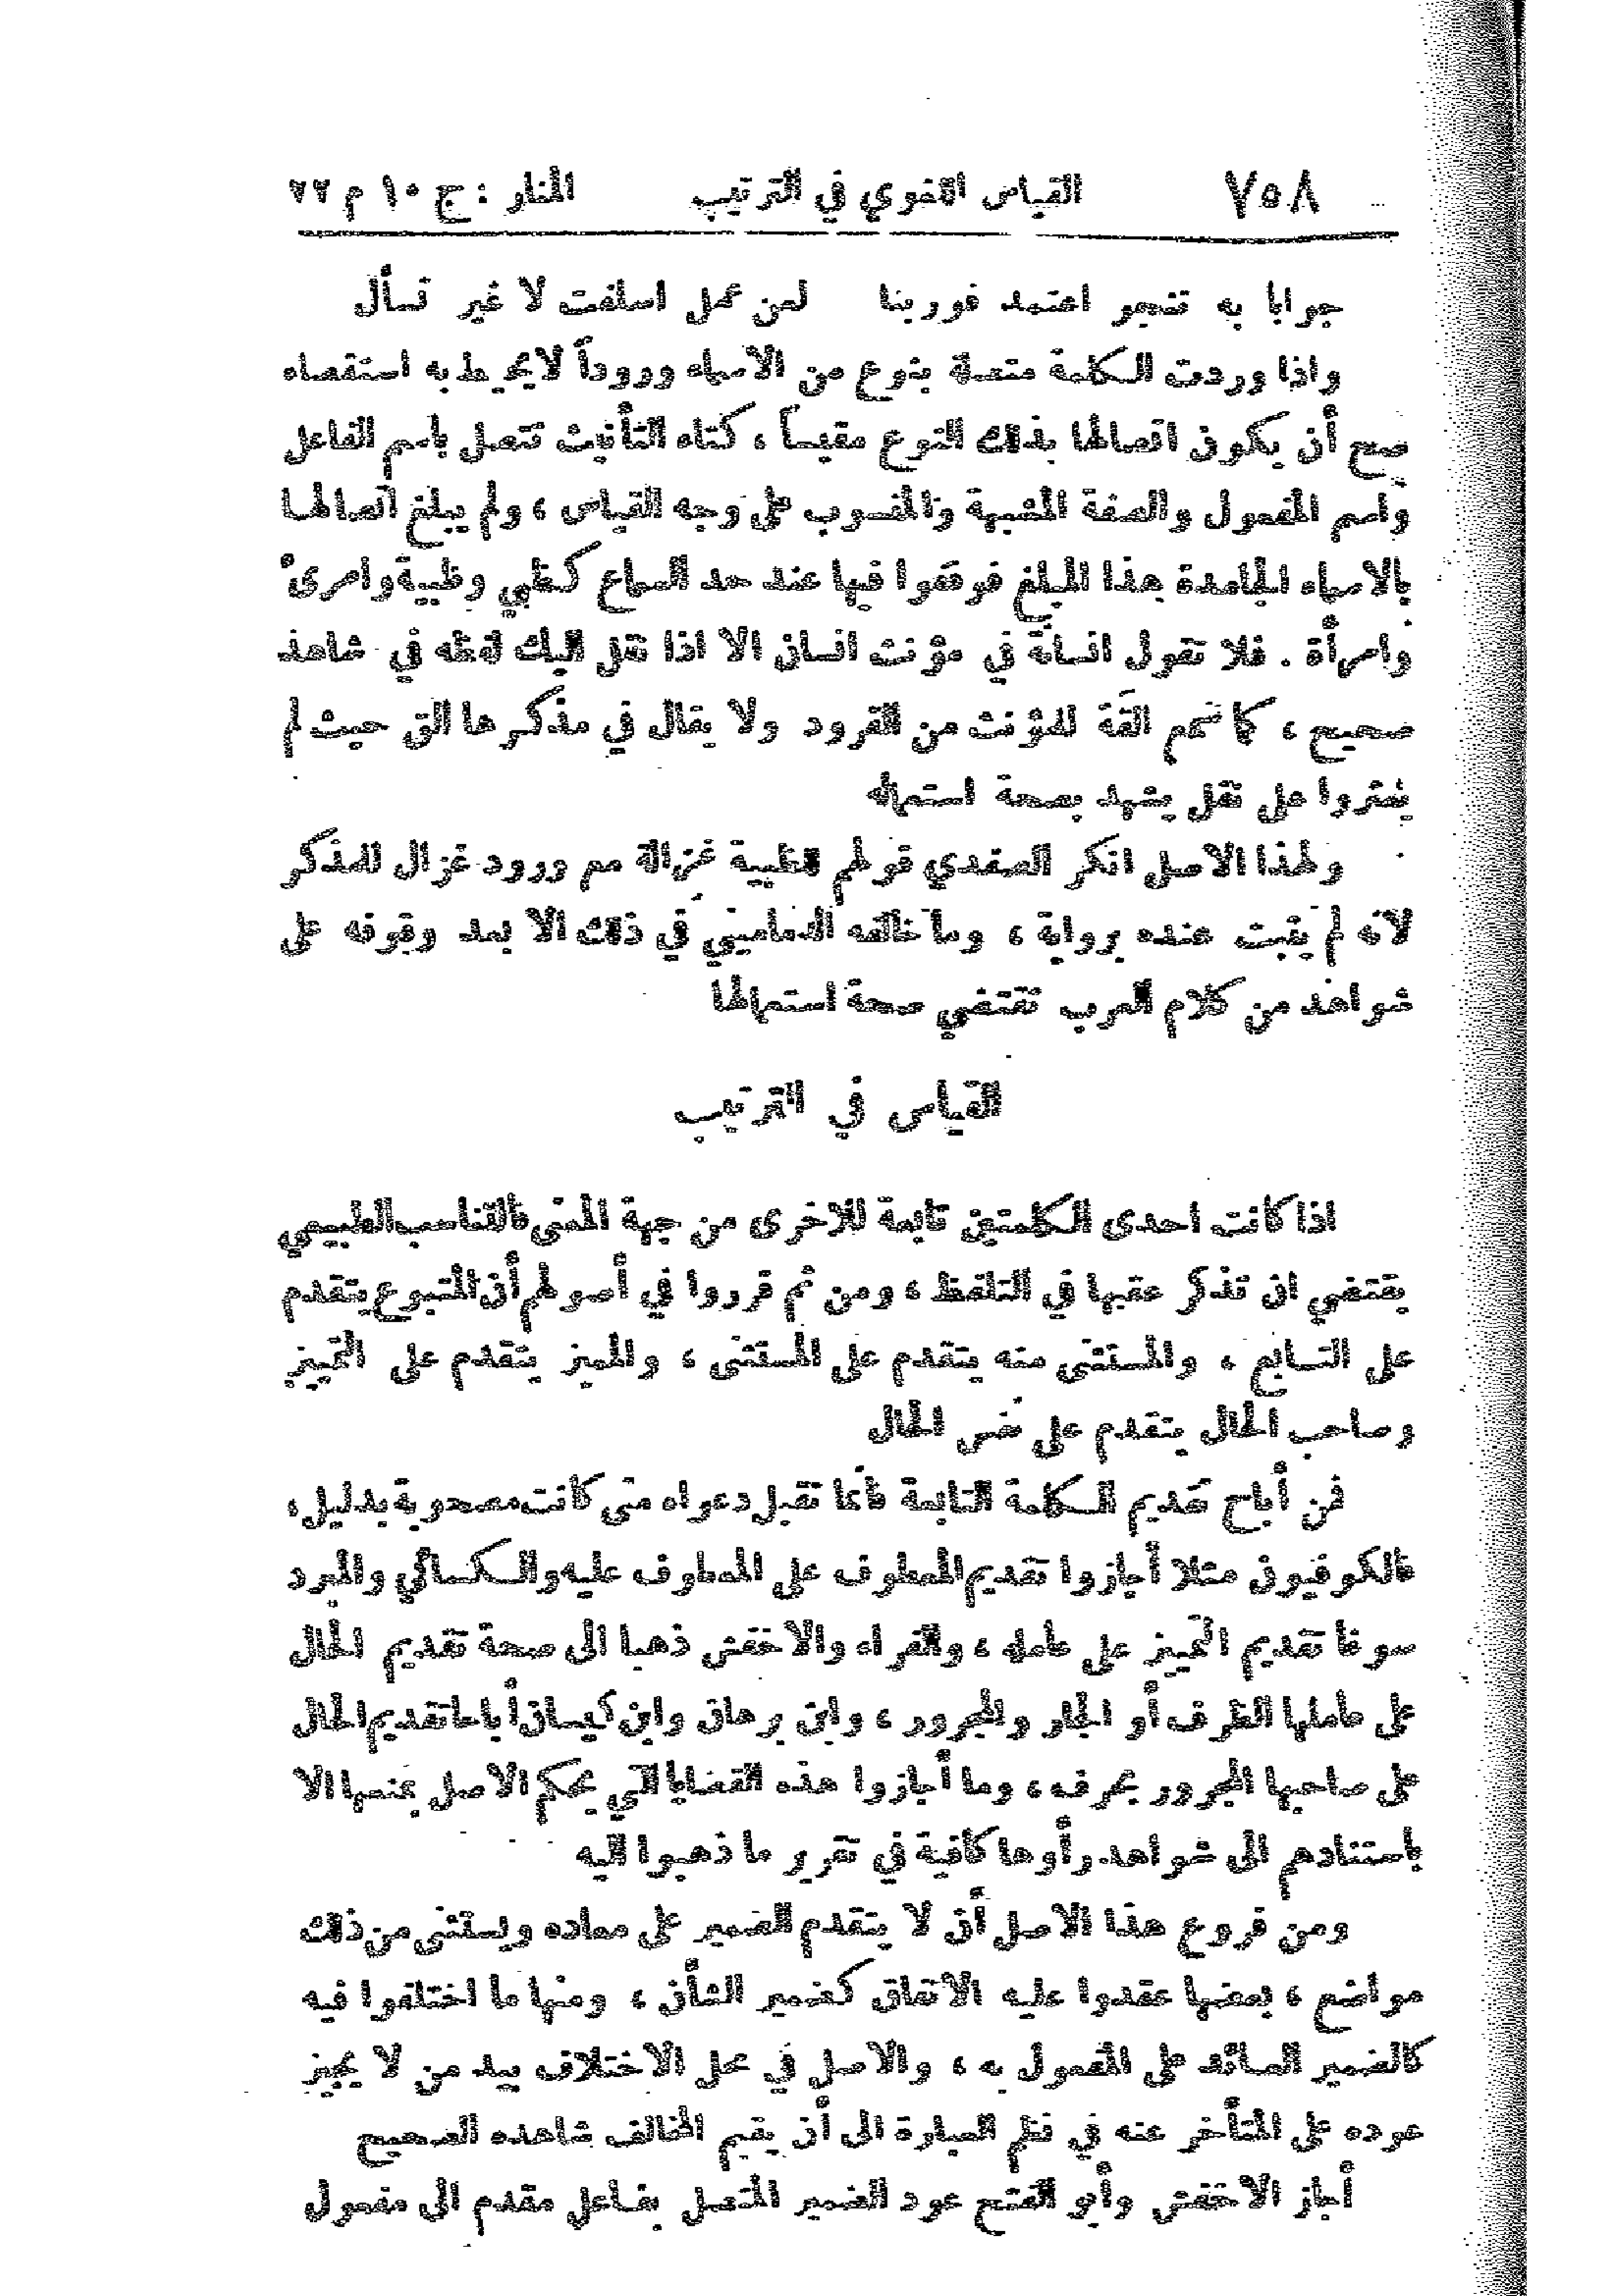 ٧٥٨ القياس اللغوي في الترتيب المنار : ج ١٠ م ٢٢
جوابا به تنجو اعتمد فوربنا لعن عمل اسلفت لا غير تسأل
واذا وردت الكلمة متصلة بنوع من الاسماء وروداً لا يحيط به استقصاء
صح أن يكون اتصالها بذلك النوع مقيساً ، كتاء التأنيث تتصل باسم الفاعل
واسم المفعول والصفة المشبهة والمنسوب على وجه القياس ، ولم يبلغ اتصالها
بالاسماء الجامدة هذا المبلغ فوقفوا فيها عند حد السماع كظبي وظبية وامرئ
وامرأة . فلا تقول انسانة في مؤنث انسان الا اذا نقل اليك لفظه في شاهد
صحيح ، كما تحكم القة للمؤنث من القرود ولا يقال في مذكرها الق حيث لم
يعثروا على نقل يشهد بصحة استعماله
ولهذا الاصل انكر الصفدي قولهم للظبية غزالة مع ورود غزال للمذكر
لانه لم يثبت عنده رواية ، وما خالفه الدماميني في ذلك الا بعد وقوفه على
شواهد من كلام العرب تقتضي صحة استعمالها
القياس في الترتيب
اذا كانت احدى الكلمتين تابعة للاخرى من جهة المعنى فالتناسب الطبيعي
يقتضي ان تذكر عقبها في التلفظ ، ومن ثم قرروا في أصولهم أن المتبوع يتقدم
على التابع ، والمستثنى منه يتقدم على المستثنى ، والمميز يتقدم على التمييز
وصاحب الحال يتقدم على نفس الحال
فمن أباح تقديم الكلمة التابعة فأنما تقبل دعواه متى كانت مصحوبة بدليل ،
فالكوفيون مثلا أجازوا تقديم المعطوف على المعطوف عليه والكسائي والمبرد
سوغا تقديم التمييز على عامله ، والفراء والاخفش ذهبا الى صحة تقديم الحال
على عاملها الظرف أو الجار والمجرور ، وابن برهان وابن كيسان أباحا تقديم الحال
على صاحبها المجرور بحرف ، وما أجازوا هذه القضايا التي يحكم الاصل بمنعها الا
باستنادهم الى شواهد رأوها كافية في تقرير ما ذهبوا اليه
ومن فروع هذا الاصل أن لا يتقدم الضمير على معاده ويستثنى من ذلك
مواضع ، بعضها عقدوا عليه الاتفاق كضمير الشأن ، ومنها ما اختلفوا فيه
كالضمير العائد على المفعول به ، والاصل في محل الاختلاف بيد من لا يجيز
عوده على المتأخر عنه في نظم العبارة الى أن يقيم المخالف شاهده الصحيح
أجاز الاخفش وأبو الفتح عود الضمير المتصل بفاعل مقدم الى مفعول